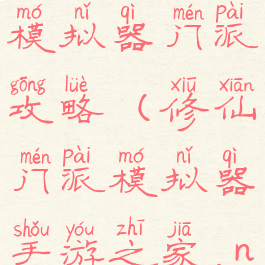 mó nǐ qì mén pài
模拟器门派
gōng lüè xiū xiān
攻略（修仙
mén pài mó nǐ qì
门派模拟器
shǒu yóu zhī jiā
手游之家,n